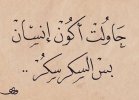 حَاولت أكُون إنسَان
بس السكر سكرُ ..